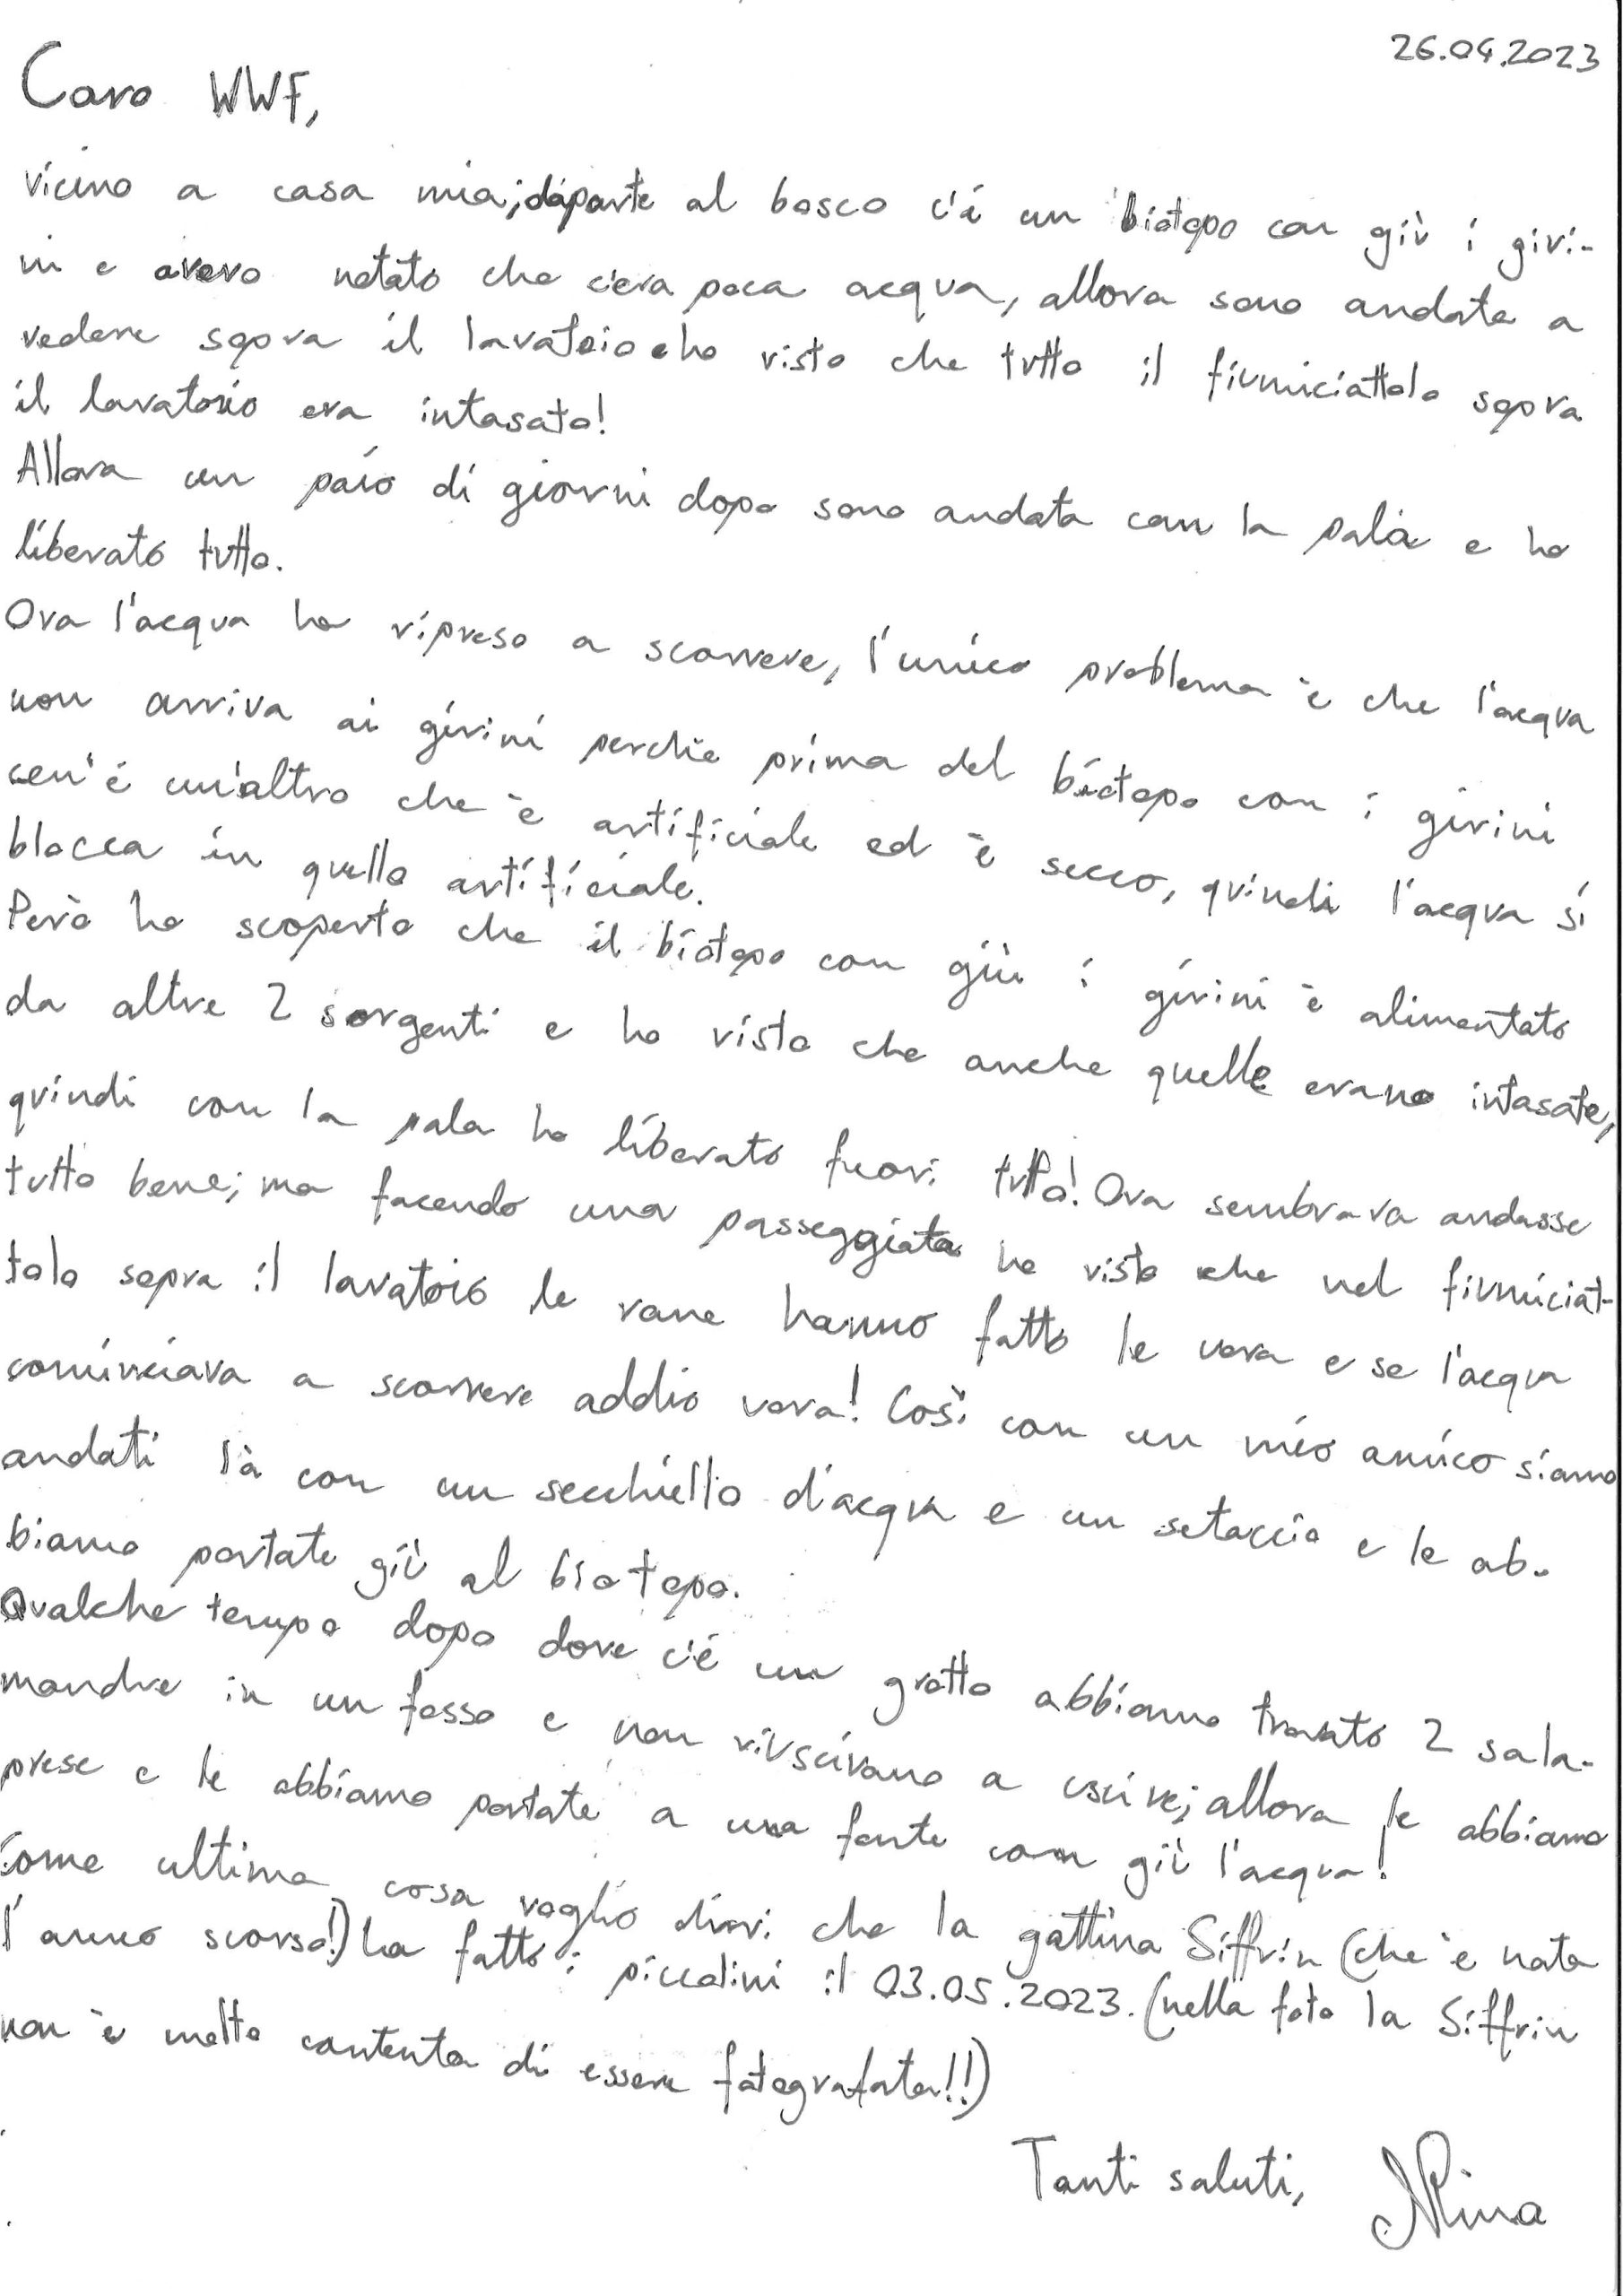 26.04.2023
Caro WWF,
vicino a casa mia, daparte al bosco c'é un biotopo con giù i giri-
ni e avevo notato che c'era poca acqua, allora sono andata a
vedere sopra il lavatoio e ho visto che tutto il fiumiciattolo sopra
il lavatorio era intasato!
Allora un paio di giorni dopo sono andata con la pala e ho
liberato tutto.
Ora l'acqua ha ripreso a scorrere, l'unico problema è che l'acqua
non arriva ai girini perchè prima del biotopo con i girini
cen'é un'altro che è artificiale ed è secco, quindi l'acqua si
blocca in quello artificiale.
Però ho scoperto che il biotopo con giù i girini è alimentato
da altre 2 sorgenti e ho visto che anche quelle erano intasate,
quindi con la pala ho liberato fuori tutto! Ora sembrava andasse
tutto bene; ma facendo una passeggiata ho visto che nel fiumiciat-
tolo sopra il lavatoio le rane hanno fatto le uova e se l'acqua
cominciava a scorrere addio uova! Così con un mio amico siamo
andati là con un secchiello d'acqua e un setaccio e le ab-
biamo portate giù al biotopo.
Qualche tempo dopo dove c'é un grotto abbiamo trovato 2 sala-
mandre in un fosso e non riuscivano a uscire; allora le abbiamo
prese e le abbiamo portate a una fonte con giù l'acqua!
Come ultima cosa voglio dirvi che la gattina Siffrin (che è nata
l'anno scorso!) ha fatto i piccolini il 03.05.2023. (nella foto la Siffrin
non è molto contenta di essere fotografata!!)
Tanti saluti, Nina